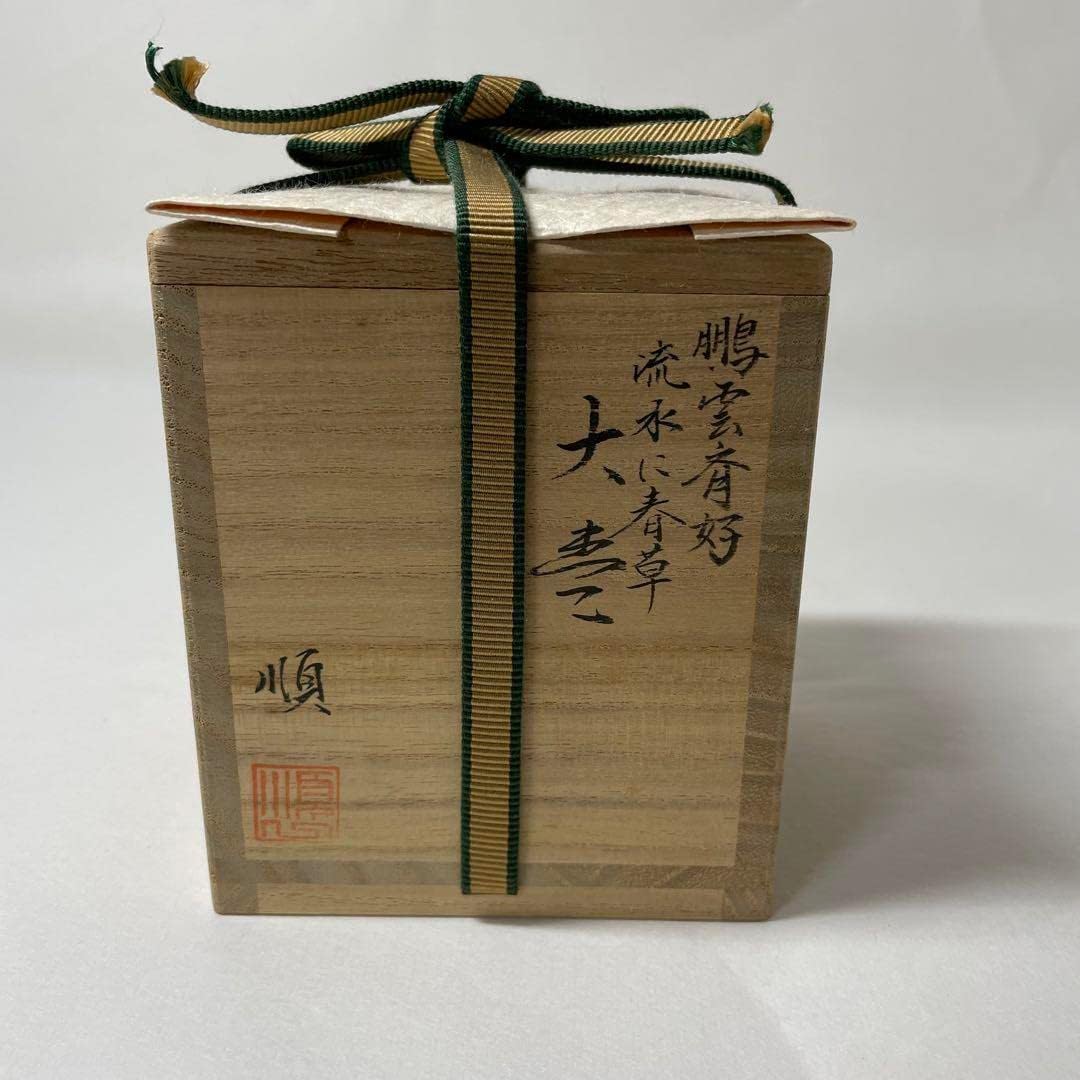 鵬雲斎好
流水に春草
大棗
順